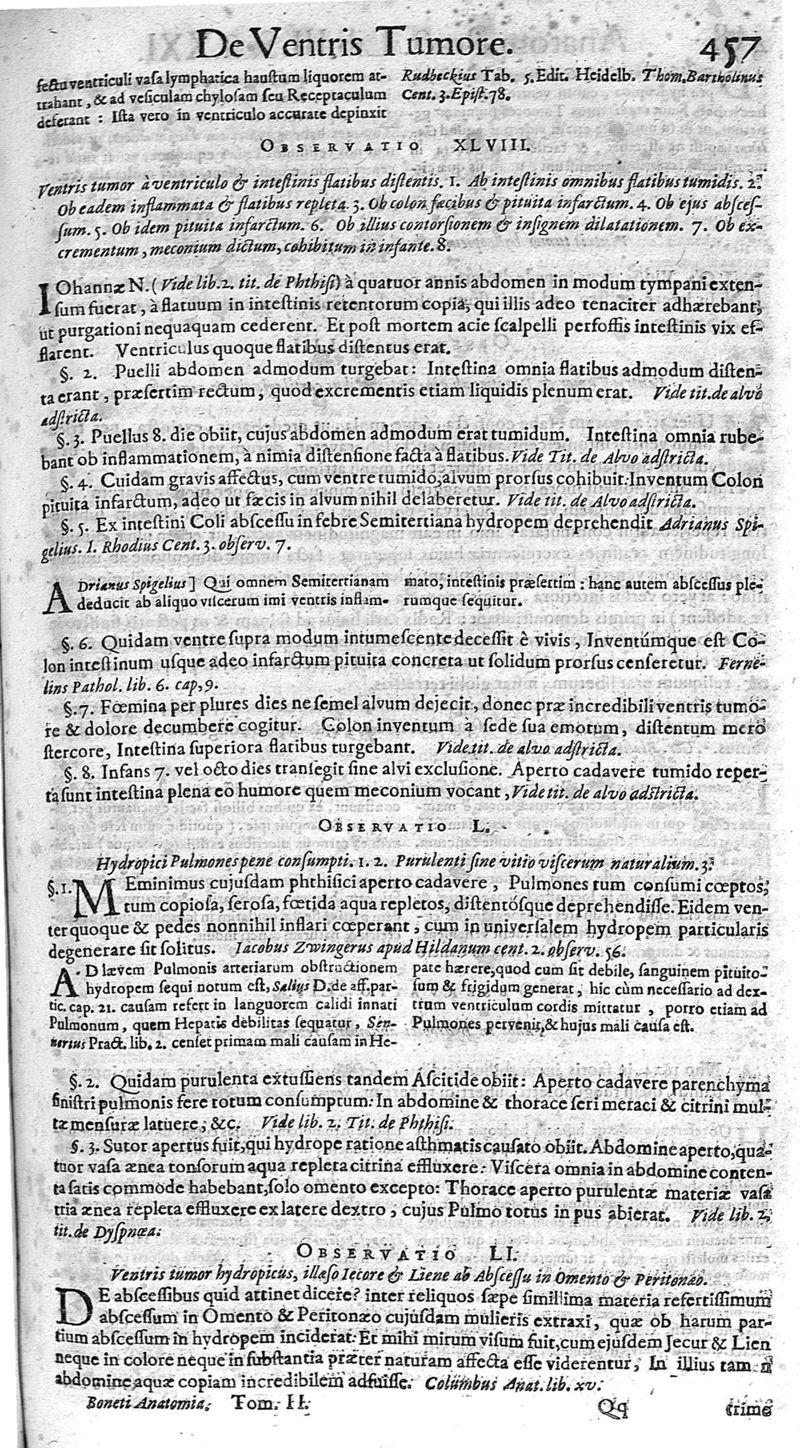 De Ventris Tumore. 457
fectu ventriculi vasa lymphatica haustum liquorem at-
trahant, & ad vesiculam chylosam seu Receptaculum
deferant : Ista vero in ventriculo accurate depinxit
Rudbeckius Tab. 5. Edit. Heidelb. Thom. Bartholinus
Cent. 3. Epist. 78.
OBSERVATIO XLVIII.
Ventris tumor à ventriculo & intestinis flatibus distentis. 1. Ab intestinis omnibus flatibus tumidis. 2.
Ob eadem inflammata & flatibus repleta. 3. Ob colon fæcibus & pituita infarctum. 4. Ob ejus absces-
sum. 5. Ob idem pituita infarctum. 6. Ob illius contorsionem & insignem dilatationem. 7. Ob ex-
crementum, meconium dictum, cohibitum in infante. 8.
IOhannæ N. (Vide lib. 2. tit. de Phthisi) à quatuor annis abdomen in modum tympani exten-
sum fuerat, à flatuum in intestinis retentorum copia, qui illis adeo tenaciter adhærebant,
ut purgationi nequaquam cederent. Et post mortem acie scalpelli perfossis intestinis vix ef-
flarent. Ventriculus quoque flatibus distentus erat.
§. 2. Puelli abdomen admodum turgebat: Intestina omnia flatibus admodum disten-
ta erant, præsertim rectum, quod excrementis etiam liquidis plenum erat. Vide tit. de alvo
adstricta.
§. 3. Puellus 8. die obiit, cujus abdomen admodum erat tumidum. Intestina omnia rube-
bant ob inflammationem, à nimia distensione facta à flatibus. Vide Tit. de Alvo adstricta.
§. 4. Cuidam gravis affectus, cum ventre tumido, alvum prorsus cohibuit: Inventum Colon
pituita infarctum, adeo ut fæcis in alvum nihil delaberetur. Vide tit. de Alvo adstricta.
§. 5. Ex intestini Coli abscessu in febre Semitertiana hydropem deprehendit Adrianus Spi-
gelius. I. Rhodius Cent. 3. observ. 7.
ADrianus Spigelius] Qui omnem Semitertianam
deducit ab aliquo viscerum imi ventris inflam-
mato, intestinis præsertim : hanc autem abscessus ple-
rumque sequitur.
§. 6. Quidam ventre supra modum intumescente decessit è vivis, Inventúmque est Co-
lon intestinum usque adeo infarctum pituita concreta ut solidum prorsus censeretur. Ferne-
lius Pathol. lib. 6. cap, 9.
§. 7. Fœmina per plures dies ne semel alvum dejecit, donec præ incredibili ventris tumo-
re & dolore decumbere cogitur. Colon inventum à sede sua emotum, distentum mero
stercore, Intestina superiora flatibus turgebant. Vide tit. de alvo adstricta.
§. 8. Infans 7. vel octo dies transegit sine alvi exclusione. Aperto cadavere tumido reper-
ta sunt intestina plena eo humore quem meconium vocant, Vide tit. de alvo adstricta.
OBSERVATIO L.
Hydropici Pulmones pene consumpti. 1. 2. Purulenti sine vitio viscerum naturalium. 3.
§. 1. MEminimus cujusdam phthisici aperto cadavere, Pulmones tum consumi cœptos,
tum copiosa, serosa, fœtida aqua repletos, distentósque deprehendisse. Eidem ven-
ter quoque & pedes nonnihil inflari cœperant, cum in universalem hydropem particularis
degenerare sit solitus. Iacobus Zwingerus apud Hildanum cent. 2. observ. 56.
AD lævem Pulmonis arteriarum obstructionem
hydropem sequi notum est, Salius D. de aff. par-
tic. cap. 21. causam refert in languorem calidi innati
Pulmonum, quem Hepatis debilitas sequatur, Sen-
nertus Pract. lib. 2. censet primam mali causam in He-
pate hærere, quod cum sit debile, sanguinem pituito-
sum & frigidum generat, hic cùm necessario ad dex-
trum ventriculum cordis mittatur, porro etiam ad
Pulmones pervenit, & hujus mali causa est.
§. 2. Quidam purulenta extussiens tandem Ascitide obiit: Aperto cadavere parenchyma
sinistri pulmonis fere totum consumptum: In abdomine & thorace seri meraci & citrini mul-
tæ mensuræ latuere, &c. Vide lib. 2. Tit. de Phthisi.
§. 3. Sutor apertus fuit, qui hydrope ratione asthmatis causato obiit. Abdomine aperto, qua-
tuor vasa ænea tonsorum aqua repleta citrina effluxere: Viscera omnia in abdomine conten-
ta satis commode habebant, solo omento excepto: Thorace aperto purulentæ materiæ vasa
tria ænea repleta effluxere ex latere dextro, cujus Pulmo totus in pus abierat. Vide lib. 2,
tit. de Dyspnœa.
OBSERVATIO LI.
Ventris tumor hydropicus, illæso Iecore & Liene ab Abscessu in Omento & Peritonæo.
DE abscessibus quid attinet dicere? inter reliquos sæpe simillima materia refertissimum
abscessum in Omento & Peritonæo cujusdam mulieris extraxi, quæ ob harum par-
tium abscessum in hydropem inciderat. Et mihi mirum visum fuit, cum ejusdem Jecur & Lien
neque in colore neque in substantia præter naturam affecta esse viderentur, In illius tamen
abdomine aquæ copiam incredibilem adfuisse. Columbus Anat. lib. xv.
Boneti Anatomia, Tom. II. Qq trime